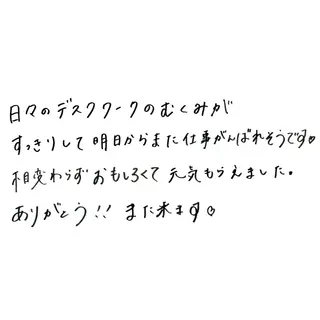 日々のデスクワークのむくみが
すっきりして明日からまた仕事がんばれそうです♡
相変わらずおもしろくて元気もらえました。
ありがとう!!また来ます♡